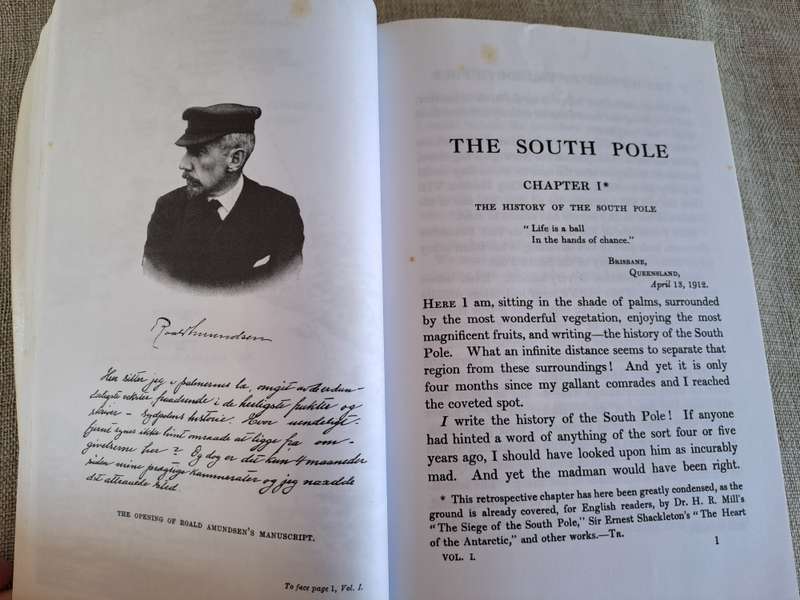 Roald Amundsen
Her sitter jeg i palmernes la, omgit av de vidun-
derligste vekster i de herligste frukter og
skriver – Sydpolens historie. Hvor uendeligt
fjernt synes ikke hint omraade at ligge fra om-
givelserne her? Og dog er det kun 4 maaneder
siden mine prægtige kammerater og jeg naadde
det attraaede sted.
THE OPENING OF ROALD AMUNDSEN'S MANUSCRIPT.
To face page 1, Vol. I.
THE SOUTH POLE
CHAPTER I*
THE HISTORY OF THE SOUTH POLE
"Life is a ball
In the hands of chance."
BRISBANE,
QUEENSLAND,
April 13, 1912.
HERE I am, sitting in the shade of palms, surrounded
by the most wonderful vegetation, enjoying the most
magnificent fruits, and writing—the history of the South
Pole. What an infinite distance seems to separate that
region from these surroundings! And yet it is only
four months since my gallant comrades and I reached
the coveted spot.
I write the history of the South Pole! If anyone
had hinted a word of anything of the sort four or five
years ago, I should have looked upon him as incurably
mad. And yet the madman would have been right.
* This retrospective chapter has here been greatly condensed, as the
ground is already covered, for English readers, by Dr. H. R. Mill's
"The Siege of the South Pole," Sir Ernest Shackleton's "The Heart
of the Antarctic," and other works.—TR.
VOL. I.
1